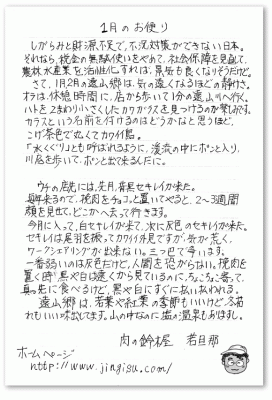 1月のお便り
しがらみと財源不足で、不況対策ができない日本。
それなら、税金の無駄使いをやめて、社会保障を見直して、
農林水産業を活性化すれば、景気も良くなりそうだけど。
さて、1月2月の遠山郷は、気の遠くなるほどの静けさ。
オラは、休憩時間に、店から歩いて1分の遠山川へ行く。
ハトを2まわり小さくしたカワガラスを見つけるのが楽しみです。
カラスという名前を付けるのはどうかなと思うほど、
こげ茶色で丸くてカワイイ鳥。
「水くぐり」とも呼ばれるように、渓流の中にポンと入り、
川底を歩いて、ポンと出てくるんだに。
ウチの庭には、先月、背黒セキレイが来た。
毎年来るので、挽肉をチョコッと置いてやると、2～3週間
顔を見せて、どこかへ去って行きます。
今月に入って、白セキレイが来て、次に灰色のセキレイが来た。
セキレイは尾羽を振ってカワイイ外見ですが、気が荒く、
ワークシェアリングが出来ない。三つ巴で争います。
一番弱いのは灰色だけど、人間を恐がらない。挽肉を
置く時、黒や白は遠くから見ているのに、ちょこちょこ寄って、
真っ先に食べるけど、黒や白にすぐに追い払われる。
遠山郷は、若葉や紅葉の季節もいいけど、冬枯
れもいい味出してます。山の中なのに塩の温泉もありますし。
肉の鈴木屋　若旦那
ホームページ
http://www.jingisu.com/